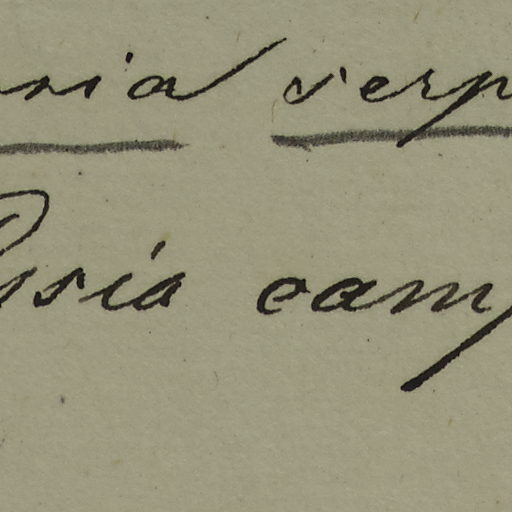 nia serp
ysia camp